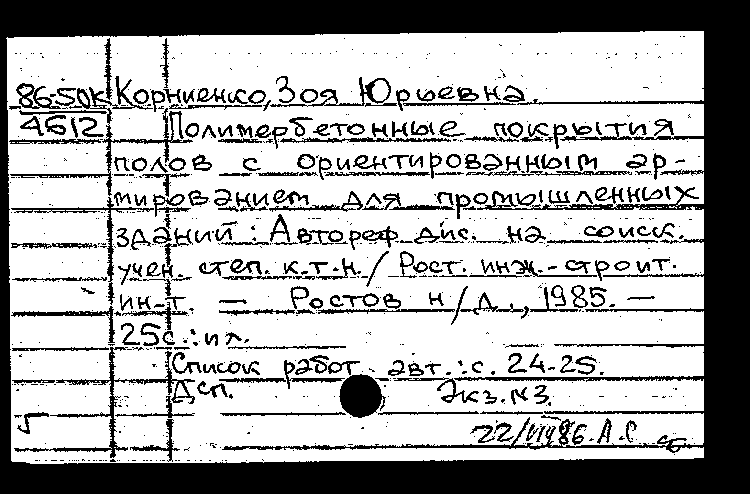 86-5ДК Корниенко, Зоя Юрьевна.
4612 Полимербетонные покрытия
полов с ориентированным ар-
мированием для промышленных
зданий : Автореф. дис. на соиск.
учен. степ. к.т.н. / Рост. инж.-строит.
ин-т. — Ростов н/Д., 1985. —
25с. : ил.
Список работ авт. : с. 24-25.
Дсп. Экз. №3.
22/VII 86. А.С.